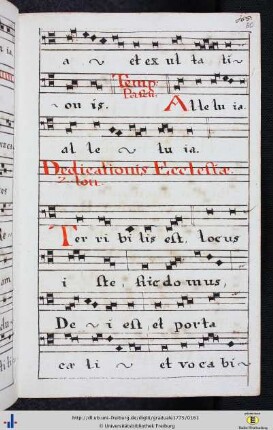 a ~ et ex ul ta ti~
Temp.
Pasch.
on is. Alle lu ia.
al le ~ lu ia.
Dedicationis Ecclesiæ
Ter ri bi lis est locus
i ste hic domus,
De~ i est et porta
cæ li ~ et vo ca bi~
http://dl.ub.uni-freiburg.de/diglit/graduale1775/0161
© Universitätsbibliothek Freiburg